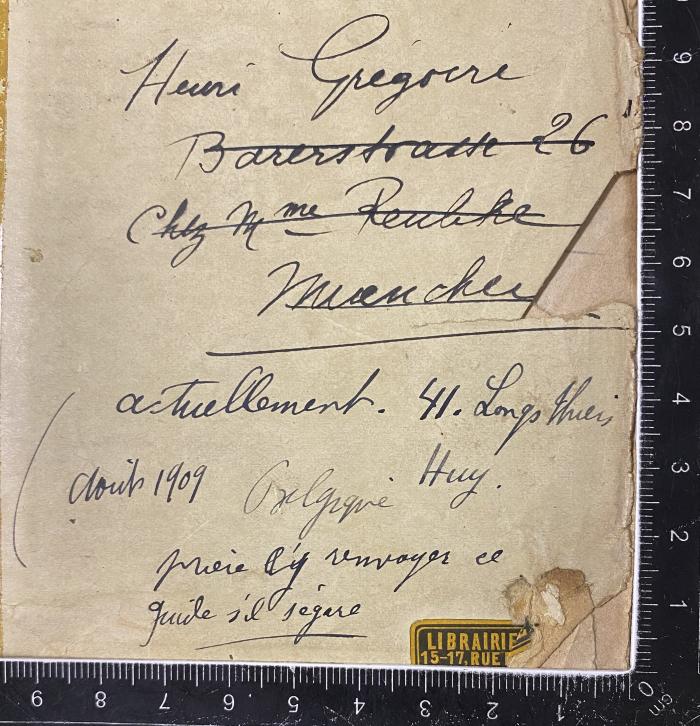 Henri Grégoire
Barerstrasse 26
Chez Mme Reubke
Muenchen
actuellement. 41. Longs thiers
Huy.
Août 1909 Belgique
prière d'y renvoyer ce
guide s'il s'égare
LIBRAIRIE
15-17, RUE
9 8 7 6 5 4 3 2 1 0 cm
9 8 7 6 5 4 3 2 1